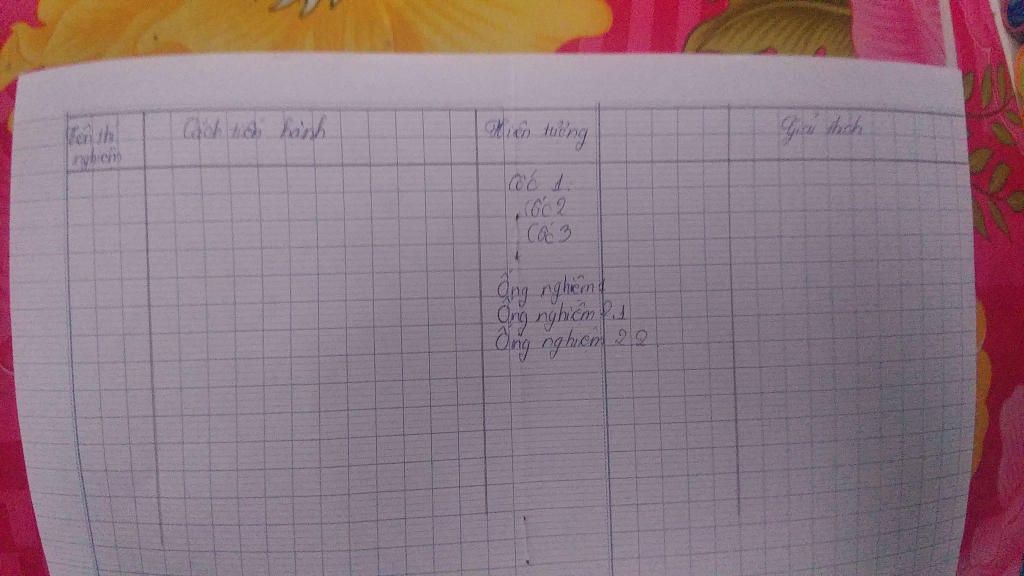 Tên th nghiệm
Cách tiến hành
Hiện tường
Giải thích
Cốc 1.
Cốc 2
Cốc 3
Ống nghiệm 1
Ống nghiệm 2.1
Ống nghiệm 2.2